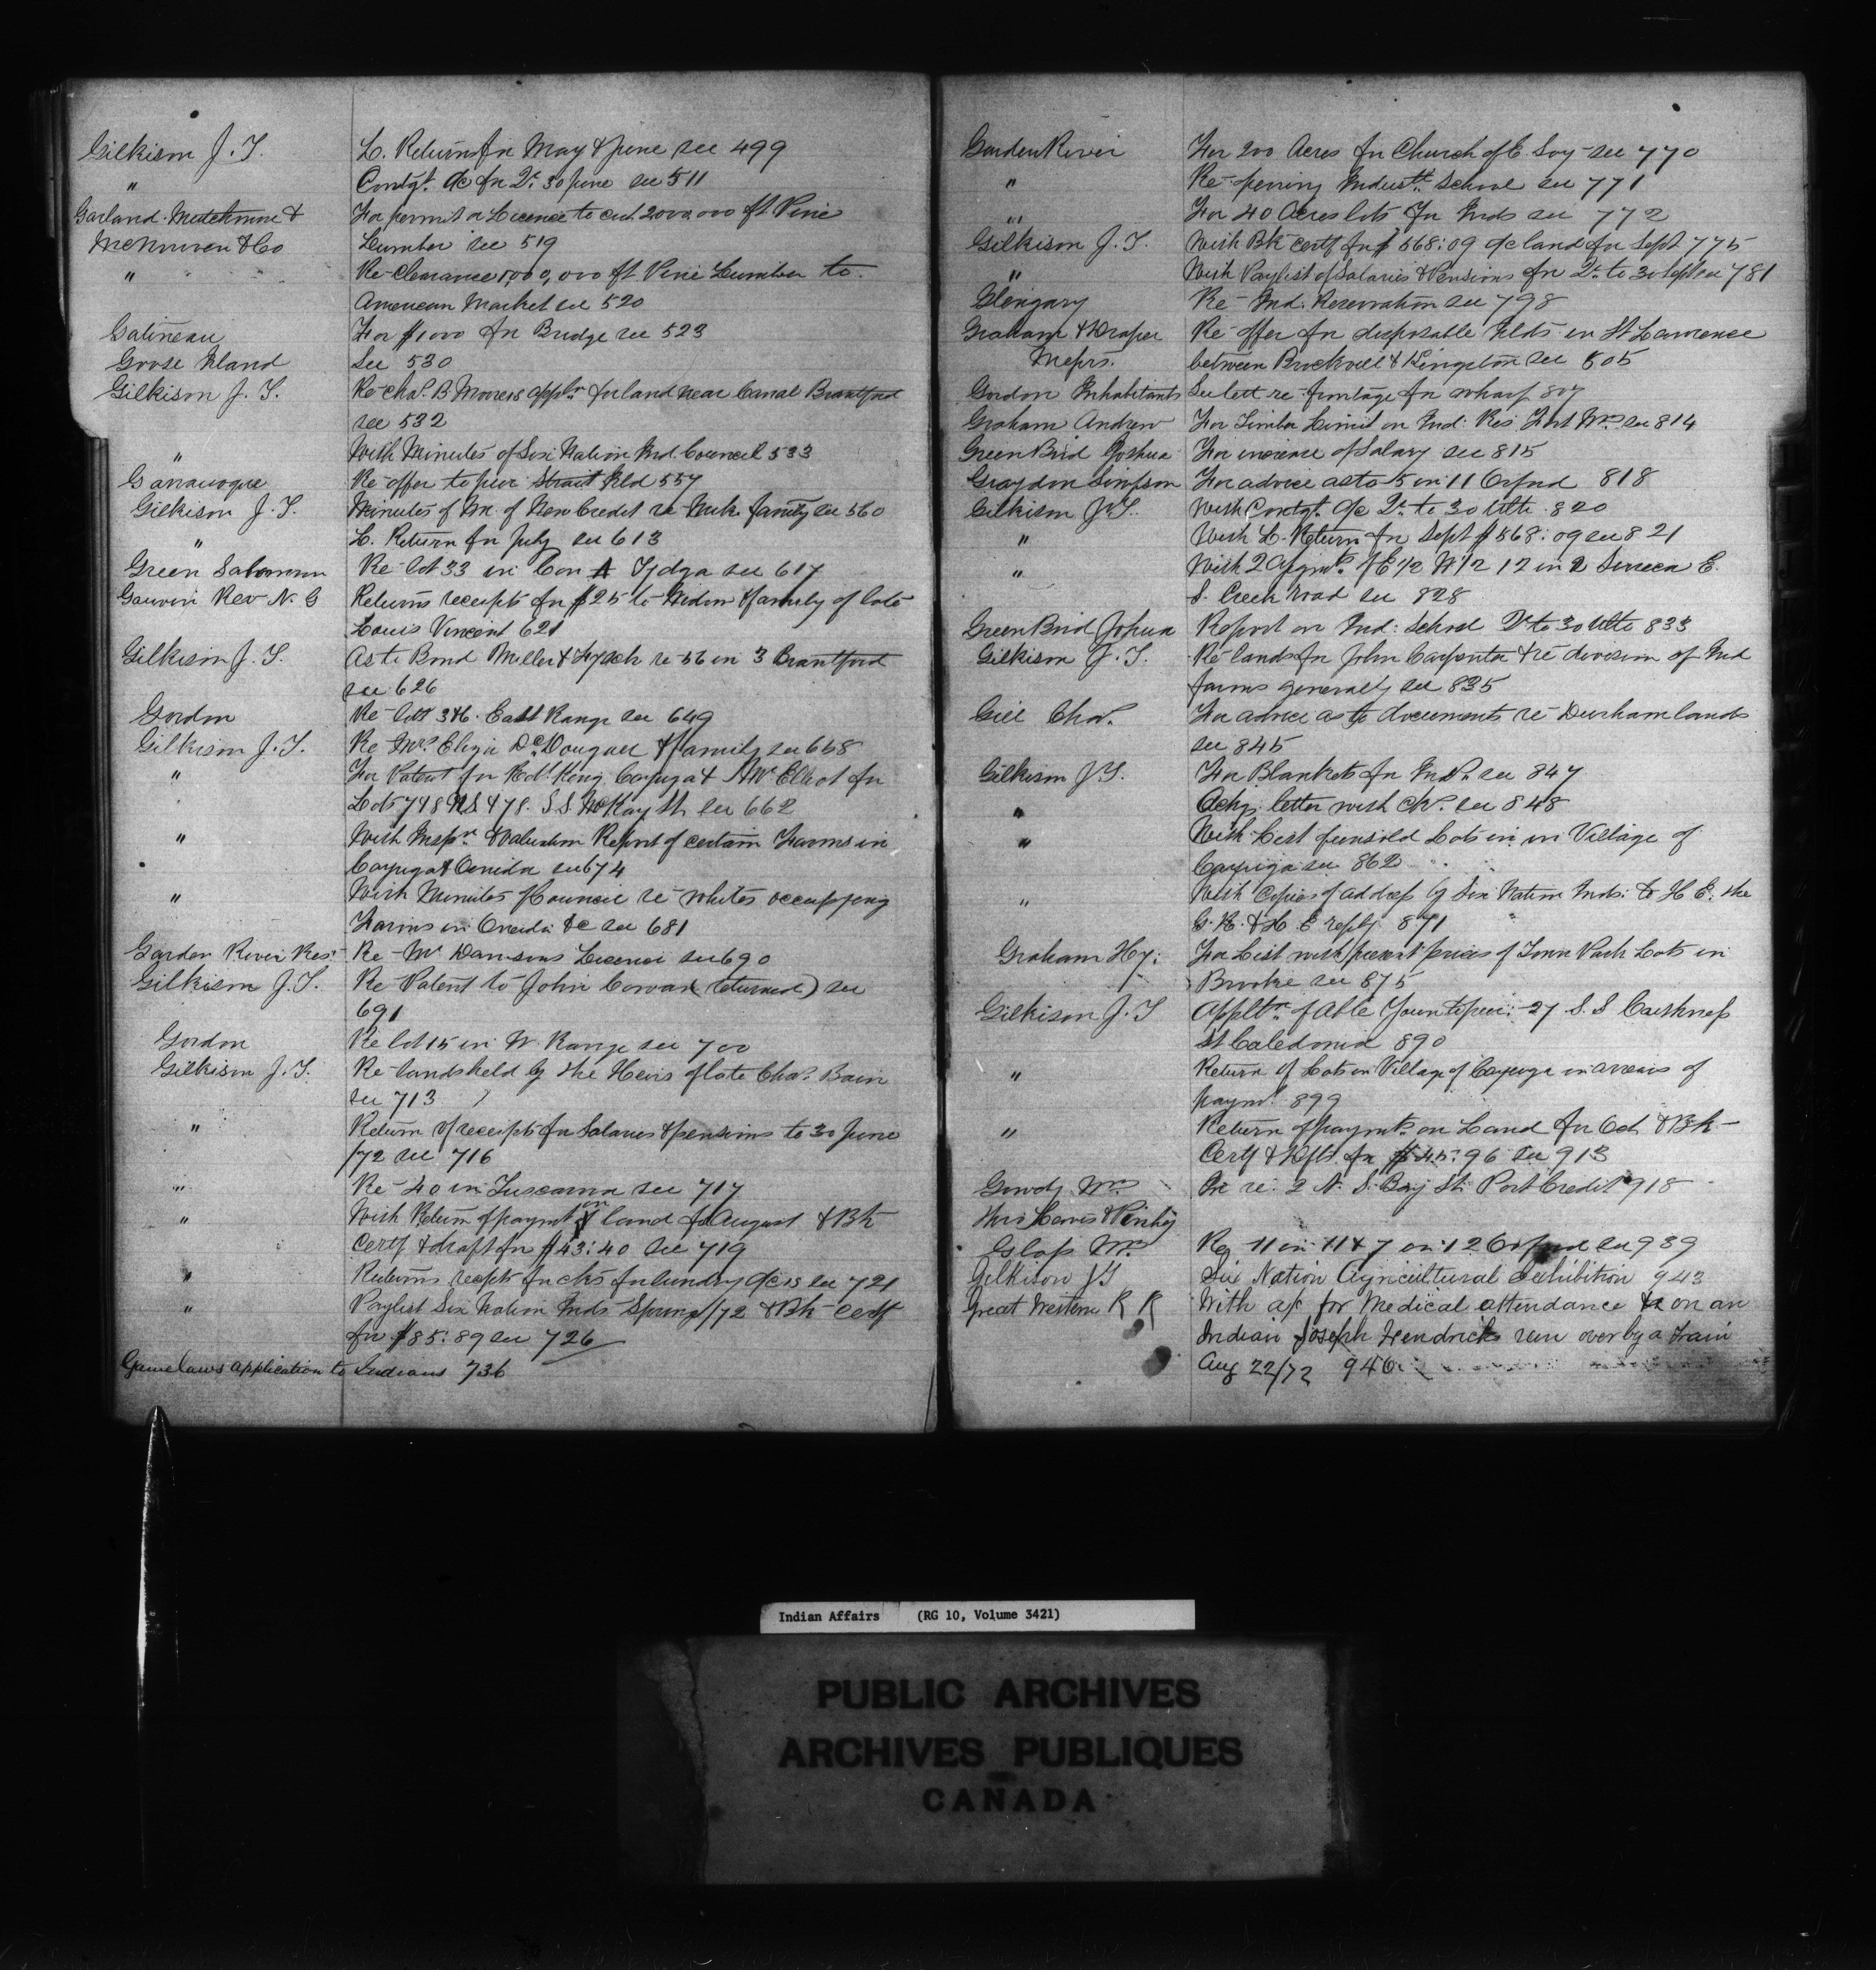 Gilkison J. T. L. Returns for May & June see 499
" Contgt. a/c for Qr. 30 June see 511
Garland Mutchmore & For permit or Licence to cut 2000,000 ft Pine
McNurven & Co Lumber see 519
" Re Clearance 1,000,000 ft Pine Lumber to
American Market see 520
Gatineau For $1000 for Bridge see 523
Goose Island See 530
Gilkison J. T. Re Chas. B Moore's appln. for land near Canal Brantford
see 532
" With Minutes of Six Nation Ind. Council 533
Gananoque Re offer to pur. Straut Isld 557
Gilkison J. T. Minutes of M. of New Credit re family see 560
" L. Return for July see 613
Green Solomon Re lot 33 in Con A see 617
Gauvin Rev N. G Returns receipts for $25 to Widow & family of late
Louis Vincent 621
Gilkison J. T. As to Bond Miller & re 56 in 3 Brantford
see 626
Gordon Re lots 3 & 6. East Range see 649
Gilkison J. T. Re Mrs. Eliza Dougall & family see 658
" For Patent for Robt. King Cayuga & Elliot for
Lots 7 & 8 NS & 78. S S McKay St. see 662
" With Inspn. & Valuation Report of certain Farms in
Cayuga & Oneida see 674
" With Minutes of Council re whites occupying
Farms in Oneida &c see 681
Garden River Res. Re Mr Dawsons Licence see 690
Gilkison J. T. Re Patent to John Cowan (returned) see
691
Gordon Re lot 15 in W. Range see 700
Gilkison J. T. Re lands held by the Heirs of late Chas. Bain
see 713
" Return of receipts for Salaries & pensions to 30 June
/72 see 716
" Re 40 in Tuscarora see 717
" With Return of paymt on land for August & Bk
Certf & draft for $43:40 see 719
" Returns recpts for cks for sundry a/cs see 721
" Paylist Six Nation Inds Spring/72 & Bk Certf
for $85:89 see 726
Game laws application to Indians 736
Garden River For 200 Acres for Church of E. Soy see 770
" Re opening Industl. School see 771
" For 40 Acres lots for Inds see 772
Gilkison J. T. With Bk certf for $568:09 a/c land for Sept 775
" With Paylist of Salaries & Pensions for Qr. to 30 Sept see 781
Glengary Re Ind. Reservation see 798
Graham & Draper Re offer for disposable Islds in St Lawrence
Messrs. between Brockvill & Kingston see 805
Gordon Inhabitants See lett re frontage for wharf 807
Graham Andrew For Timber Limit on Ind: Res Fort Wm. see 814
Green Bird Joshua For increase of Salary see 815
Graydon Simpson For advice as to 5 in 11 Orford 818
Gilkison J. T. With Contgt. a/c Qr. to 30 Ulto 820
" With L. Return for Sept $568:09 see 821
" With 2 Assgmts. of E 1/2 W 1/2 12 in 2 Seneca E.
S. Creek road see 828
Green Bird Joshua Report on Ind: School Qr to 30 Ulto 833
Gilkison J. T. Re lands for John Carpenter & re division of Ind
farms generally see 835
Gill Chas. For advice as to documents re Durham lands
see 845
Gilkison J. T. For Blankets for Inds. see 847
" Ackg. letter with cks. see 848
" With List of unsold Lots in in Village of
Cayuga see 862
" With Copies of address by Six Nation Inds: to H E. the
G. G. & H. E reply 871
Graham Hy: For List with present prices of Town Park Lots in
Brooke see 875
Gilkison J. T Appltn. of Able Youn to pur: 27 S. S Caithness
St Caledonia 890
" Return of Lots in Village of Cayuga in arrears of
paymt. 899
" Return of paymts. on Land for Oct & Bk
Certf & Rcpts for $45:96 see 913
Gowdy Wm. In re: 2 N. S. Bay St. Port Credit 918
thro
Glass Wm. Re 11 in 11 & 7 in 12 Orford see 939
Gilkison J T Six Nation Agricultural Exhibition 943
Great Western R R With a/c for Medical attendance on an
Indian Joseph Hendricks run over by a train
Aug 22/72 946
Indian Affairs (RG 10, Volume 3421)
PUBLIC ARCHIVES
ARCHIVES PUBLIQUES
CANADA